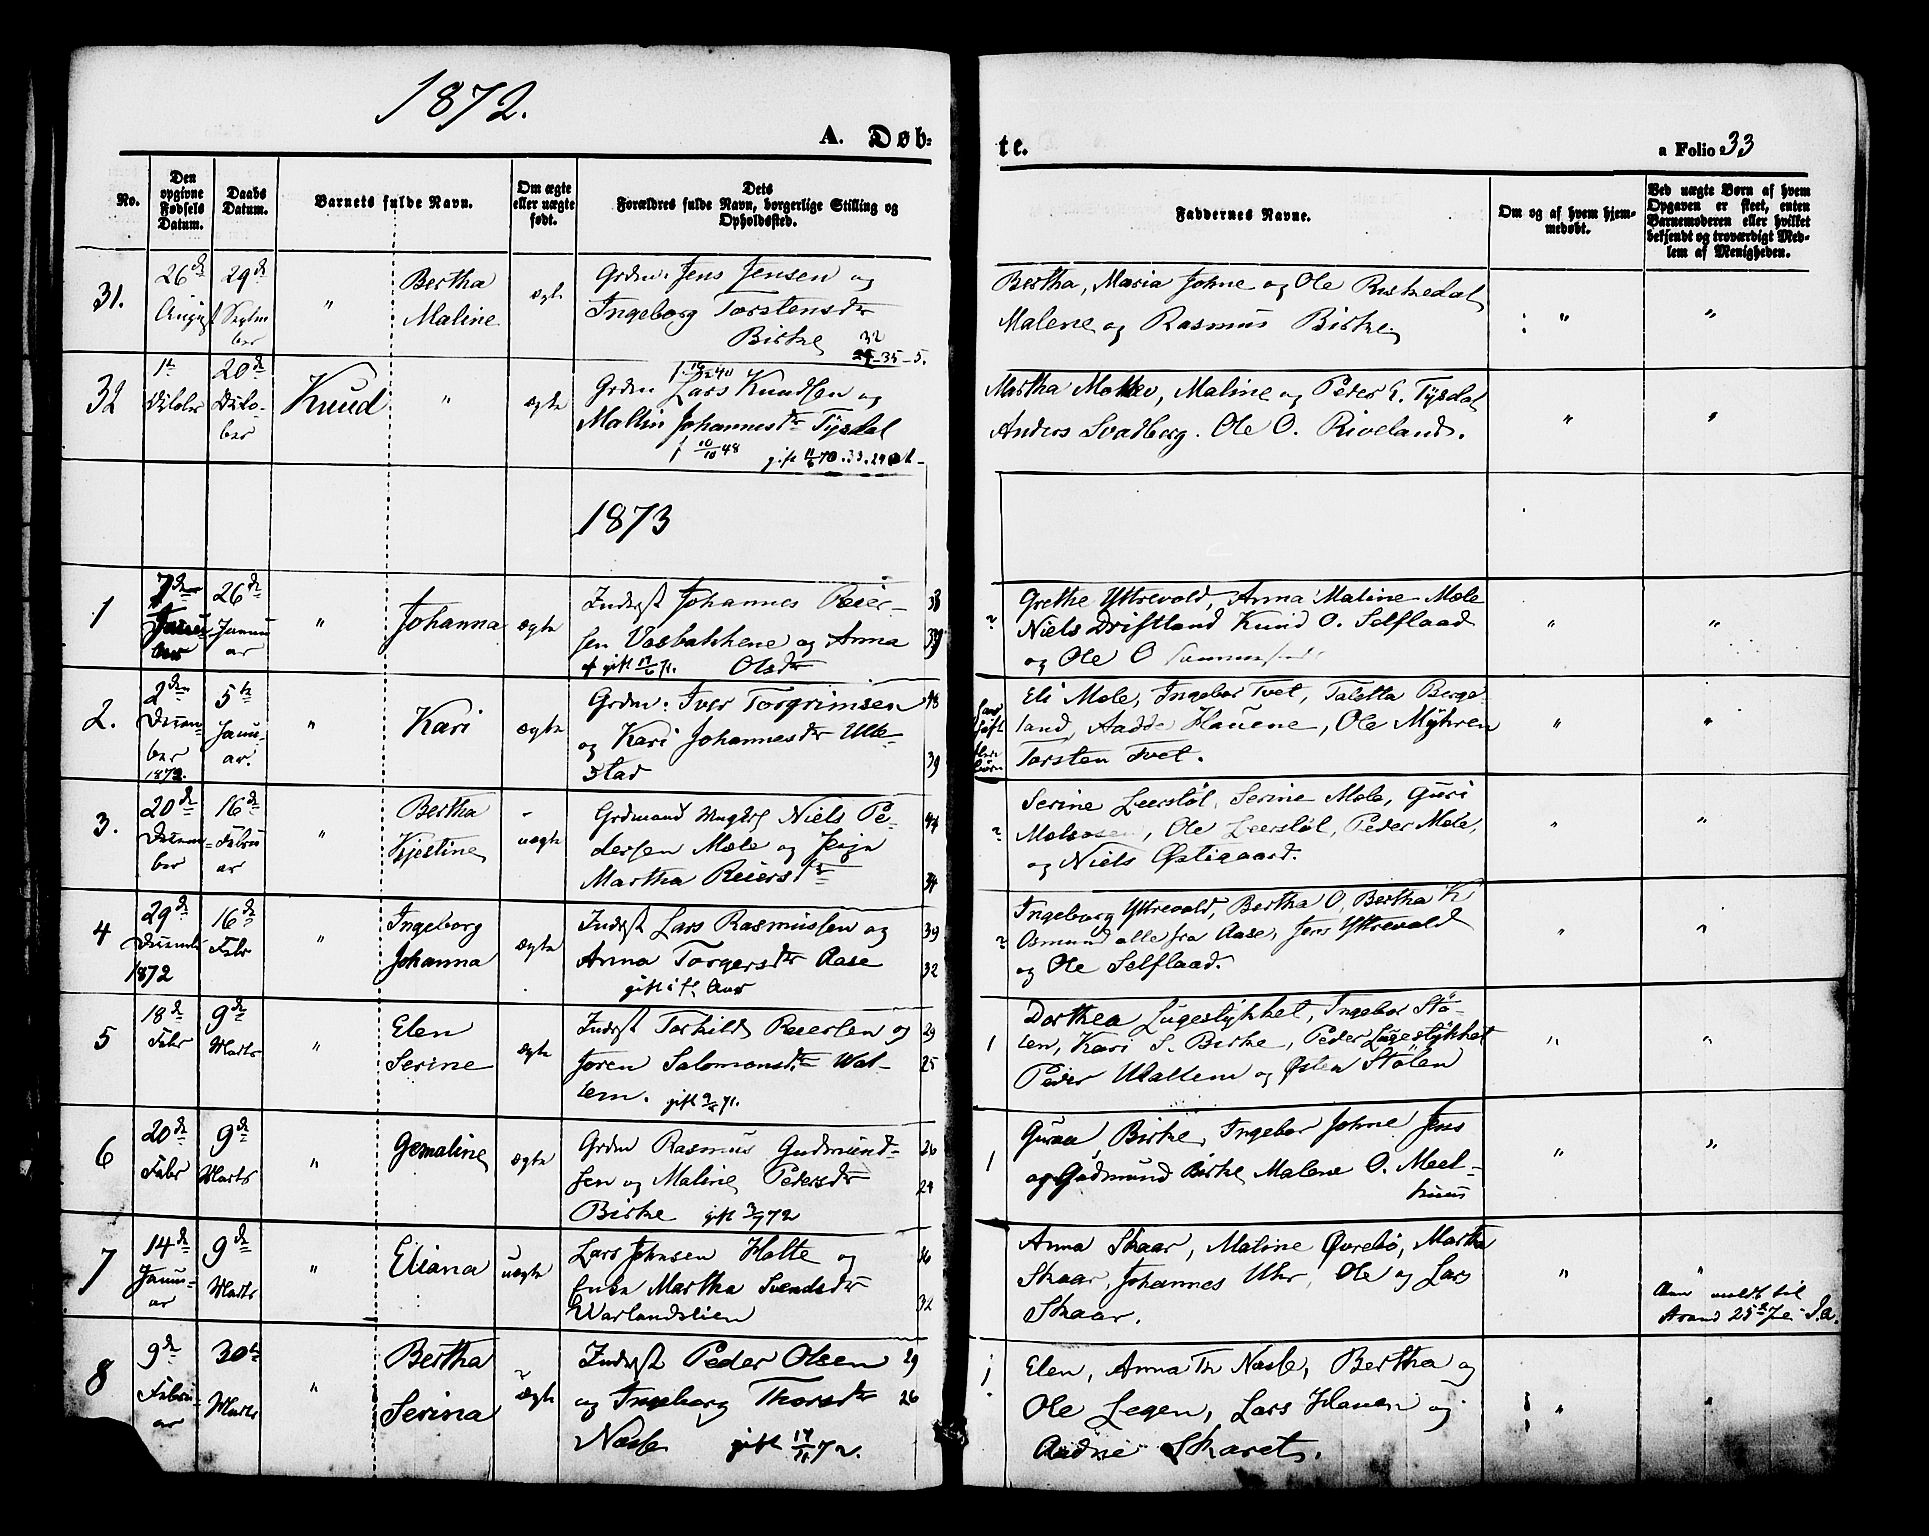 1872.
A. Døb-
te.
a Folio a 33
No.
Den opgivne Fødsels Datum.
Daabs Datum.
Barnets fulde Navn.
Om ægte eller uægte født.
Dets Forældres fulde Navn, borgerlige Stilling og Opholdssted.
Faddernes Navne.
Om og af hvem hjemmedøbt.
Ved uægte Børn af hvem Opgaven er skeet, enten Barnemoderen eller hvilket bekjendt og troværdigt Medlem af Menigheden.
31.
26de August
29de Septmber
"
Bertha
Maline
ægte
Grdm. Jens Jensen og
Ingeborg Torstensdtr
Birke
32
35-5.
Bertha, Maria Johne og Ole Ruskedal
Malene og Rasmus Birke
"
"
32
1te Octobr
20de Octo-
ber
Knud
"
ægte
Grdm Lars Knudsen og
Mallin Johannesdtr Tysdal
f 10/10 48 gift 11/6 70. 33. 29
Martha Mokkev, Maline og Peder E. Tysdal
Anders Svadberg. Ole O. Riveland.
"
"
1873
1
7de
26de
Januu
ar
"
Johanna
ægte
Inderst Johannes Reier-
sen Vasbakkene og Anna
gift 17/6 71. Olsdtr
38
39
?
Grethe Yttrevold, Anna Maline Mæle
Niels Driftland Knud O. Selflaad
og Ole O
"
"
2.
2den
Decem-
ber
1872.
5te
Janu-
ar.
"
Kari
ægte
Grdm. Iver Torgrimsen
og Kari Johannesdtr Ulle-
stad
48
39
Eli Mæle, Ingebor Tvet, Taletta Berge-
land, Aadde Hauene, Ole Myhren
Torsten Tvet.
"
"
3.
20de
Decem-
ber
16de
Febru
ar
"
Bertha
Kjestine
uægte
Grdmand Ungkrl Niels Pe-
dersen Mæle og Pige
Martha Reiersdtr
44
34
?
Serine Leersløl, Serine Mæle, Guri
Mælsosen, Ole Leersløl, Peder Mæle,
og Niels Østigaard.
"
"
4
29de
Decemb
1872
16de
Febr
"
Ingeborg
Johanna
ægte
Inderst Lars Rasmussen og
Anna Torgersdtr Aase
gift i fl. Aar
39
32
?
Ingeborg Yttrevold, Bertha O, Bertha K
Osmund alle fra Aase, Jens Yttrevold
og Ole Selflaad.
"
"
5
18de
Febr
9de
Marts
"
Elen
Serine
ægte
Inderst Torkild Reiersen og
Joren Salomonsdtr Wal-
lem. gift 9/ 71.
29
25
1
Dorthea Lugestykket, Ingebor Stö-
len, Kari S. Birke, Peder Lugestykket
Peder Wallem og Østen Stölen
"
"
6
20de
Febr
9de
Marts
"
Gemaline
ægte
Grdm Rasmus Gudmund-
sen og Maline Pedersdtr
Birke gift 3/7 72
26
24
1
Guraa Birke, Ingebor Johne Jens
og Gudmund Birke Malene O. Meel-
huus
"
"
7
14de
Janu-
ar
9de
Marts
"
Eliana
uægte
Lars Johnsen Holte og
Enke Martha Svendsdtr
Warlandslien
36
32
Anna Skaar, Maline Øvrebö, Martha
Skaar, Johannes Uhr, Ole og Lars
Skaar.
"
"
Anm meldt til
25
8
9de
Febru-
ar
30te
Marts
"
Bertha
Serina
ægte
Inderst Peder Olsen
og Ingeborg Thorsdtr
Næsse gift 17/11 72.
29
26
1
Elen, Anna Th Næsse, Bertha og
Ole Legen, Lars Hauen og
Aadne Skaret.
"
"